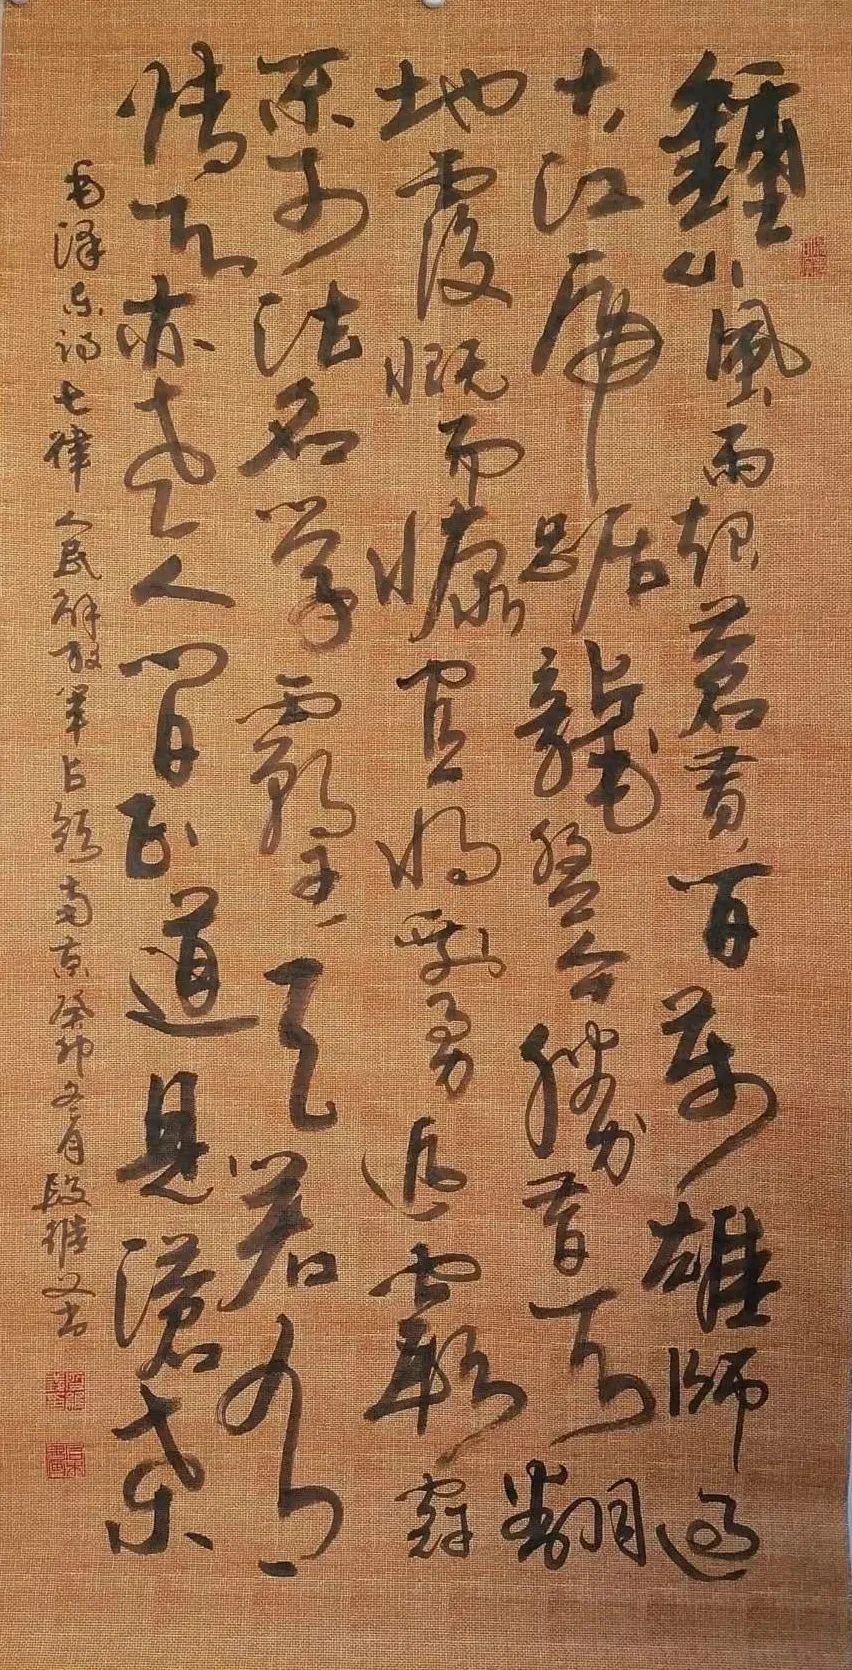 鍾山風雨起蒼黄百萬雄師過
大江虎踞龍盤今勝昔天翻
地覆慨而慷宜將剩勇追窮寇
不可沽名學霸王天若有
情天亦老人間正道是滄桑
毛澤东诗七律人民解放軍占領南京癸卯冬月段維书